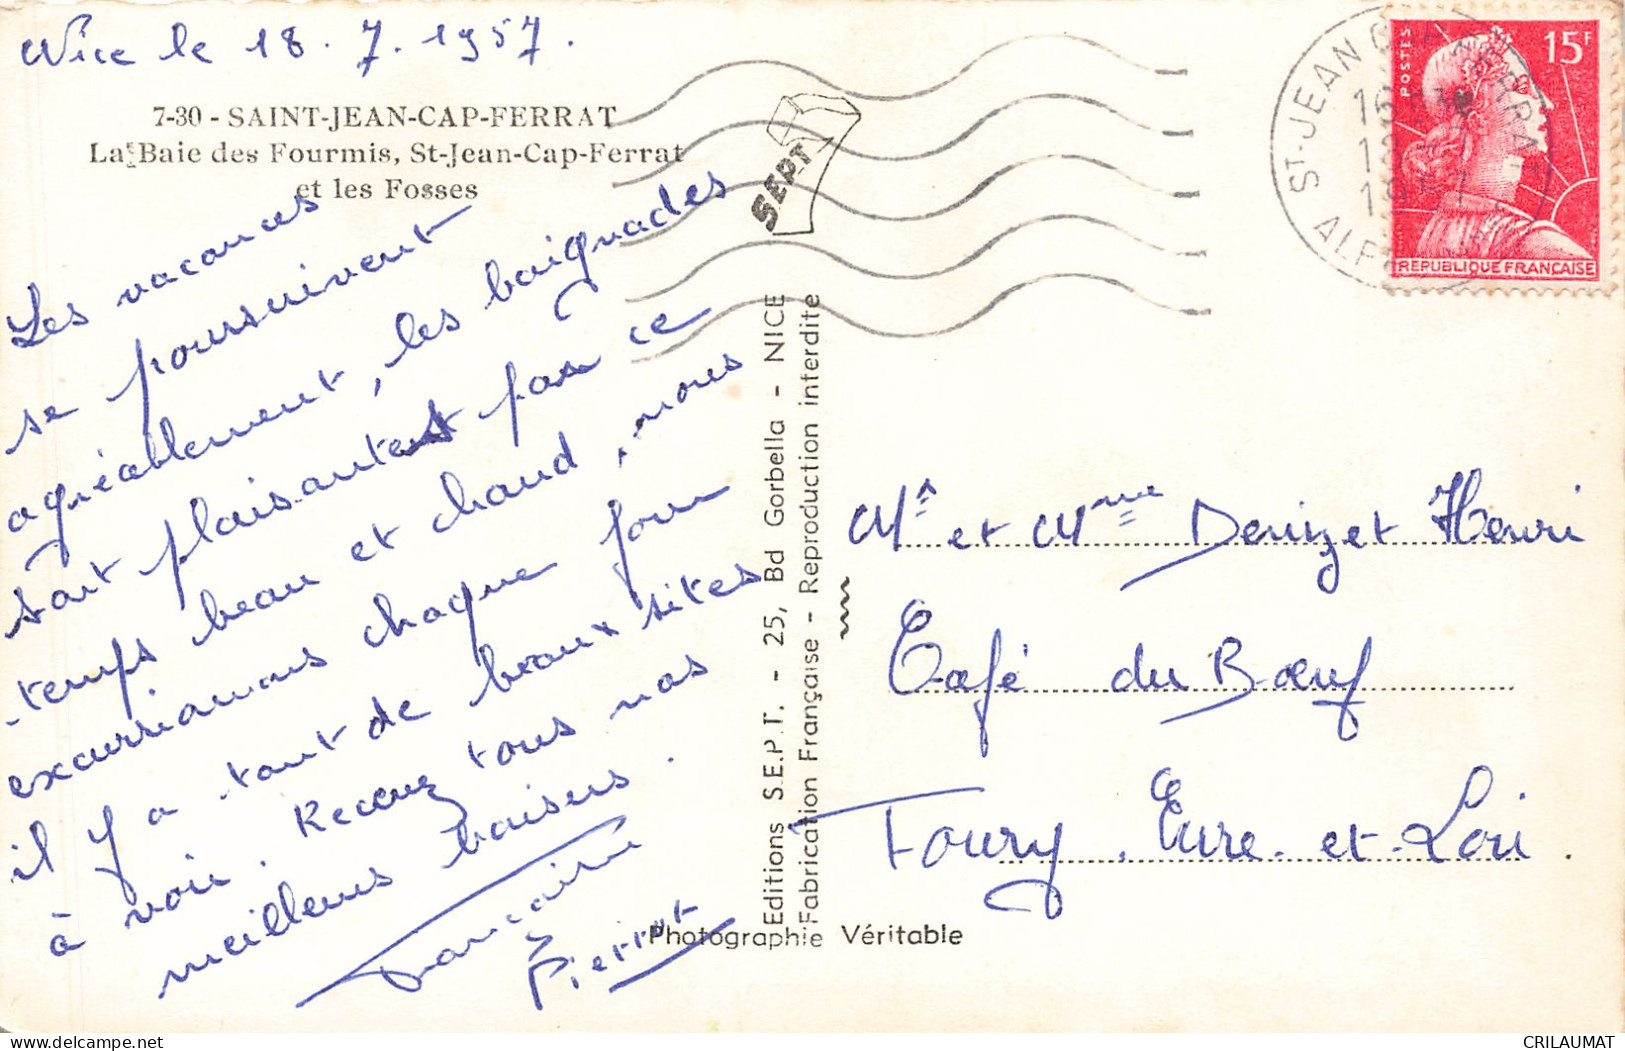 Nice le 18.7.1957.
7-30 - SAINT-JEAN-CAP-FERRAT
La Baie des Fourmis, St-Jean-Cap-Ferrat
et les Fosses
Les vacances
se poursuivent
agréablement, les baignades
sont plaisantes par ce
temps beau et chaud, nous
excursionnons chaque jour
il y a tant de beaux sites
à voir. Recevez tous nos
meilleurs baisers.
Francine
Pierrot
SEPT
Editions S.E.P.T. - 25, Bd Gorbella - NICE
Fabrication Française - Reproduction interdite
Photographie Véritable
ST-JEAN CAP FERRAT
1957
ALP
POSTES
15F
REPUBLIQUE FRANCAISE
Mr et Mme Denizet Henri
Café du Bœuf
Toury. Eure-et-Loir.
CRILAUMAT